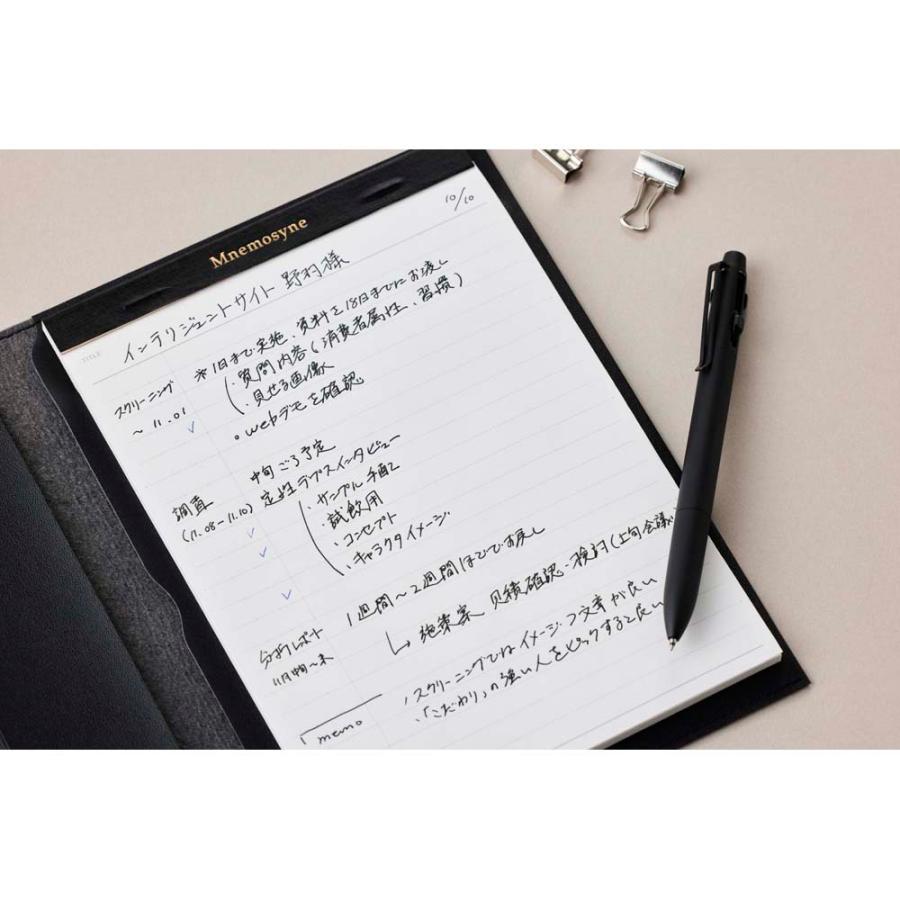 Mnemosyne
10/10
TITLE
インテリジェントサイト 野村様
スクリーニング
～11.01
※1日まで実施、資料を18日までにお渡し
・質問内容(消費者属性、習慣)
・見せる画像
・webデモを確認
調査
(11.08-11.10)
中旬ごろ予定
定性ラブスインタビュー
・サンプル手配
・試飲用
・コンセプト
・キャラクタイメージ
分析レポート
11月中旬～末
1週間～2週間ほどでお戻し
↳ 施策案 見積確認・検討(上旬会議)
memo
・スクリーニングではイメージつく文章が良い
・「こだわり」の強い人をピックすると良い